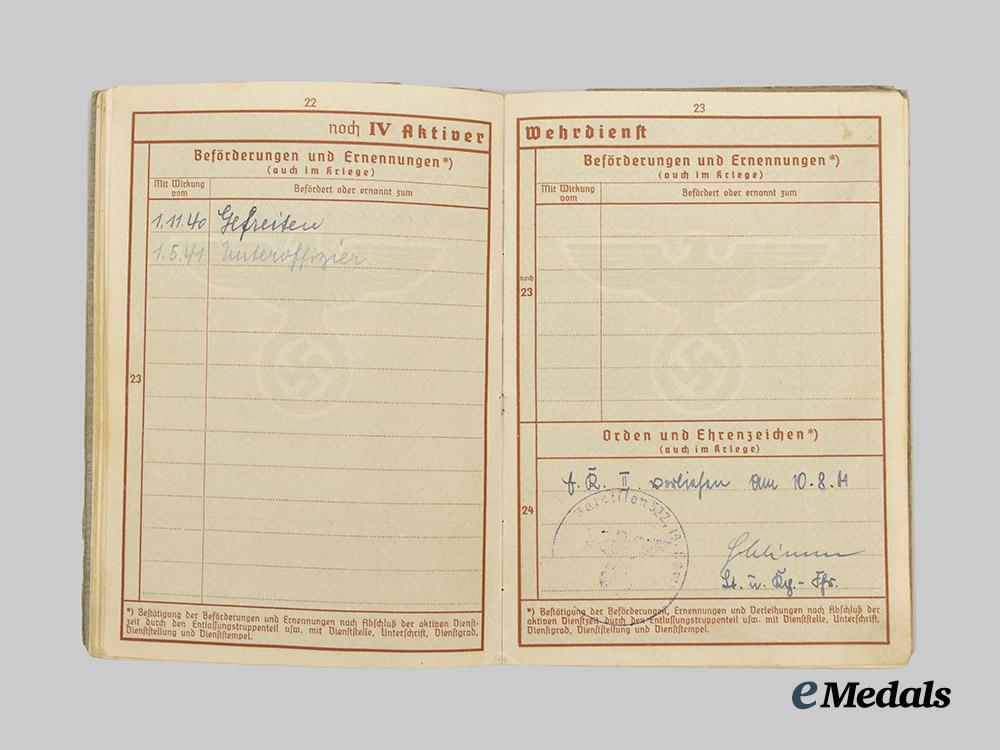 22
noch IV Aktiver
Beförderungen und Ernennungen*)
(auch im Kriege)
Mit Wirkung vom
Befördert oder ernannt zum
1.11.40 Gefreiten
1.5.41 Unteroffizier
23
*) Bestätigung der Beförderungen und Ernennungen nach Abschluß der aktiven Dienst-
zeit durch den Entlassungstruppenteil usw. mit Dienststelle, Unterschrift, Dienstgrad,
Dienststellung und Dienststempel.
23
Wehrdienst
Beförderungen und Ernennungen*)
(auch im Kriege)
Mit Wirkung vom
Befördert oder ernannt zum
noch
23
Orden und Ehrenzeichen*)
(auch im Kriege)
K. II. verliehen am 10.8.41
24
Bataillon 522
Lt. u. Kp.-Fhr.
*) Bestätigung der Beförderungen, Ernennungen und Verleihungen nach Abschluß der
aktiven Dienstzeit durch den Entlassungstruppenteil usw. mit Dienststelle, Unterschrift,
Dienstgrad, Dienststellung und Dienststempel.
eMedals